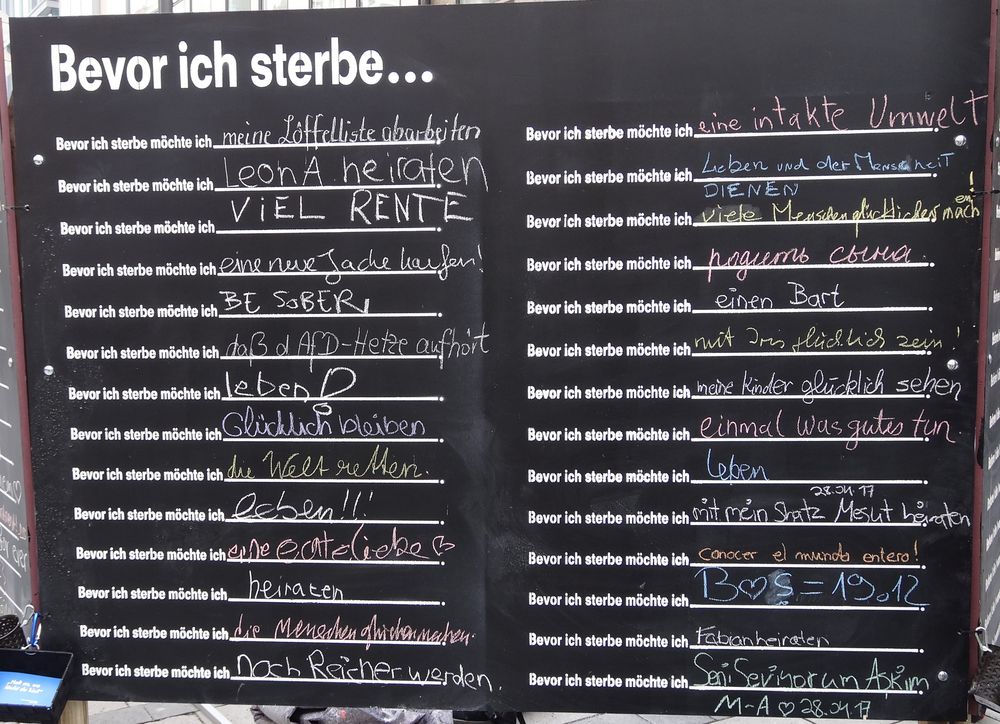 Bevor ich sterbe...
Bevor ich sterbe möchte ich meine Löffelliste abarbeiten.
Bevor ich sterbe möchte ich LeonA heiraten.
Bevor ich sterbe möchte ich ViEL RENTE.
Bevor ich sterbe möchte ich eine neue Jacke kaufen!
Bevor ich sterbe möchte ich BE SoBER.
Bevor ich sterbe möchte ich daß d AfD-Hetze aufhört.
Bevor ich sterbe möchte ich leben.
Bevor ich sterbe möchte ich Glücklich bleiben.
Bevor ich sterbe möchte ich die Welt retten.
Bevor ich sterbe möchte ich leben!!!
Bevor ich sterbe möchte ich eine echte liebe ♡.
Bevor ich sterbe möchte ich heiraten.
Bevor ich sterbe möchte ich die Menschen machen.
Bevor ich sterbe möchte ich noch Reicher werden.
Bevor ich sterbe möchte ich eine intakte Umwelt.
Bevor ich sterbe möchte ich Lieben und der Menschheit
DIENEN
Bevor ich sterbe möchte ich viele Menschen glücklicher machen!
Bevor ich sterbe möchte ich родить сына.
Bevor ich sterbe möchte ich einen Bart.
Bevor ich sterbe möchte ich mit Iris glücklich sein!
Bevor ich sterbe möchte ich meine Kinder glücklich sehen.
Bevor ich sterbe möchte ich einmal was gutes tun.
Bevor ich sterbe möchte ich leben.
28.04.17
Bevor ich sterbe möchte ich mit mein Shatz Mesut heiraten.
Bevor ich sterbe möchte ich conocer el mundo entero!
Bevor ich sterbe möchte ich B♡S = 19.12
Bevor ich sterbe möchte ich Fabian heiraten.
Bevor ich sterbe möchte ich Seni Seviyorum Aşkım.
M-A ♡ 28.04.17